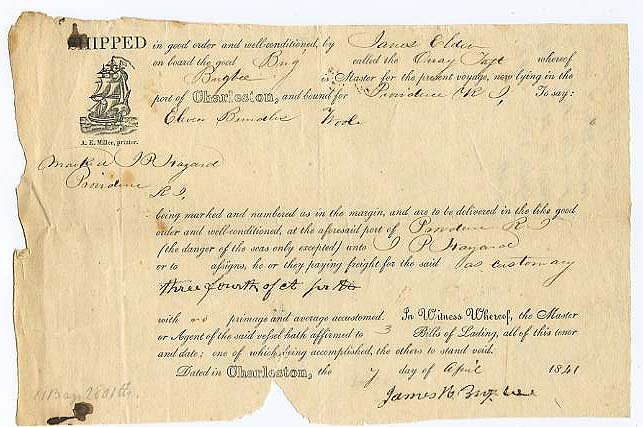 SHIPPED in good order and well-conditioned, by James Elder
on board the good Brig called the Onray Taft whereof
Bugbee is Master for the present voyage, now lying in the
port of Charleston, and bound for Providence R I, To say:
Eleven Bundles Wool
A. E. Miller, printer.
Marked I P Hazard
Providence
R I,
being marked and numbered as in the margin, and are to be delivered in the like good
order and well-conditioned, at the aforesaid port of Providence R I
(the danger of the seas only excepted) unto I P Hazard
or to assigns, he or they paying freight for the said as customary
three fourth of ct per
with no primage and average accustomed. In Witness Whereof, the Master
or Agent of the said vessel hath affirmed to 3 Bills of Lading, all of this tenor
and date: one of which being accomplished, the others to stand void.
Dated in Charleston, the 7 day of April 1841
James H